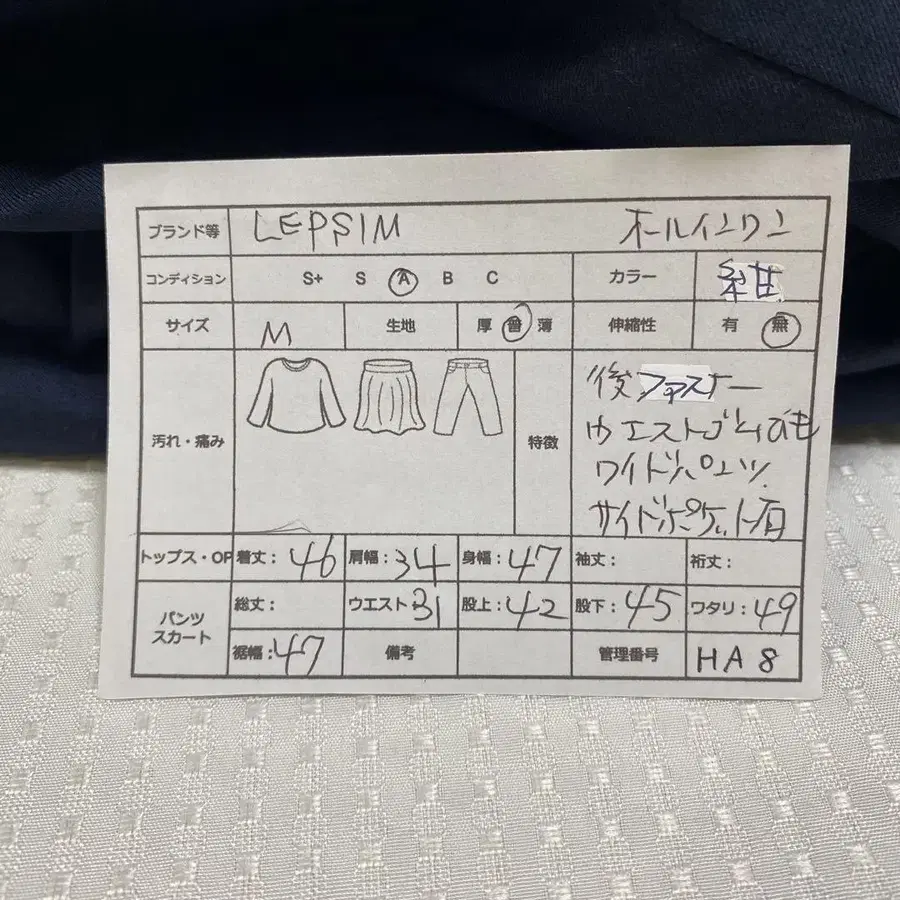 ブランド等 LEPSIM オールインワン
コンディション S+ S A B C カラー 紺
サイズ M 生地 厚 普 薄 伸縮性 有 無
汚れ・痛み 特徴
後ファスナー
ウエストゴム ひも
ワイドパンツ
サイドポケット有
トップス・OP 着丈:46 肩幅:34 身幅:47 袖丈: 裄丈:
パンツ スカート 総丈: ウエスト31 股上:42 股下:45 ワタリ:49
裾幅:47 備考 管理番号 HA8